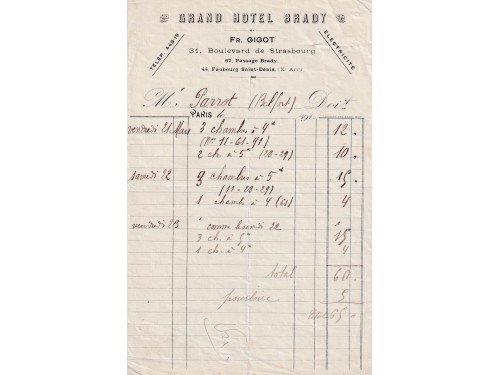 GRAND HOTEL BRADY
TÉLÉP. 442-19
ÉLECTRICITÉ
FR. GIGOT
31, Boulevard de Strasbourg
67, Passage Brady.
44, Faubourg Saint-Denis, (Xe Arr)
Mr Parrot (Belfort) Doit
PARIS le 191
vendredi 21 Mars 3 chambres à 4f 12
(Nos 11-61-91)
2 ch. à 5f (20-29) 10
samedi 22 3 chambres à 5f 15
(11-20-29)
1 chamb à 4 (61) 4
23 comme 22
3 ch. à 5f 15
1 ch. à 4f 4
total 60
pourboire 5
65